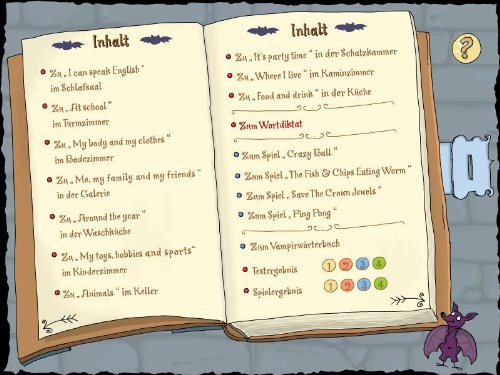 Inhalt
Zu „I can speak English"
im Schlafsaal
Zu „At school"
im Turmzimmer
Zu „My body and my clothes"
im Badezimmer
Zu „Me, my family and my friends"
in der Galerie
Zu „Around the year"
in der Waschküche
Zu „My toys, hobbies and sports"
im Kinderzimmer
Zu „Animals" im Keller
Inhalt
Zu „It's party time" in der Schatzkammer
Zu „Where I live" im Kaminzimmer
Zu „Food and drink" in der Küche
Zum Wortdiktat
Zum Spiel „Crazy Ball"
Zum Spiel „The Fish & Chips Eating Worm"
Zum Spiel „Save The Crown Jewels"
Zum Spiel „Ping Pong"
Zum Vampirwörterbuch
Testergebnis 1 2 3 4
Spielergebnis 1 2 3 4
?